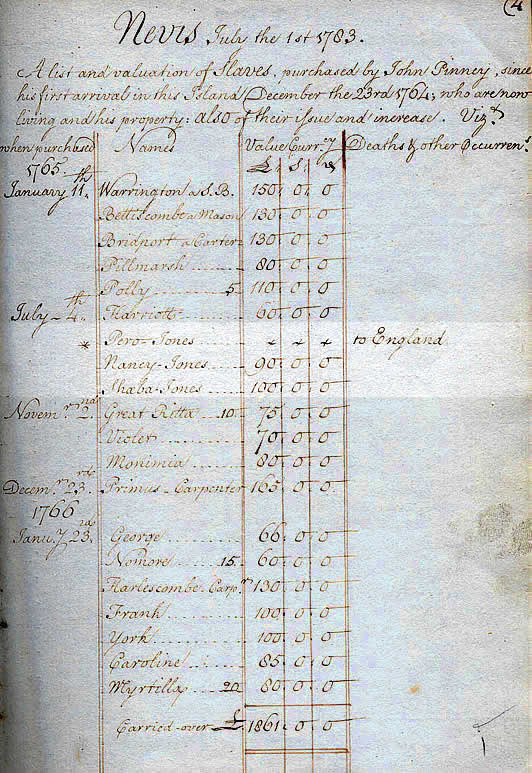 (4
Nevis July the 1st 1783.
A list and valuation of Slaves, purchased by John Pinney, since
his first arrival in this Island December the 23rd 1764; who are now
living and his property: also of their issue and increase. Vizt
when purchased Names Value Curr:y Deaths & other Occurrens
1765 £ S
January 11th Warrington a S.B. 150 0 0
Bettiscombe a Mason 130 0 0
Bridport a Carter 130 0 0
Pillmarsh 80 0 0
Polly 5 110 0 0
July 4th Harriott 60 0 0
* Pero Jones + + + to England
Nancy Jones 90 0 0
Jhaba Jones 100 0 0
Novemr 2nd Great Ritta 10 75 0 0
Violet 70 0 0
Monimia 80 0 0
Decemr 23rd Primus Carpenter 165 0 0
1766
Janu:y 23rd George 66 0 0
Nomore 15 60 0 0
Harlescombe Carpr 130 0 0
Frank 100 0 0
York 100 0 0
Caroline 85 0 0
Myrtilla 20 80 0 0
Carried over £ 1861 0 0